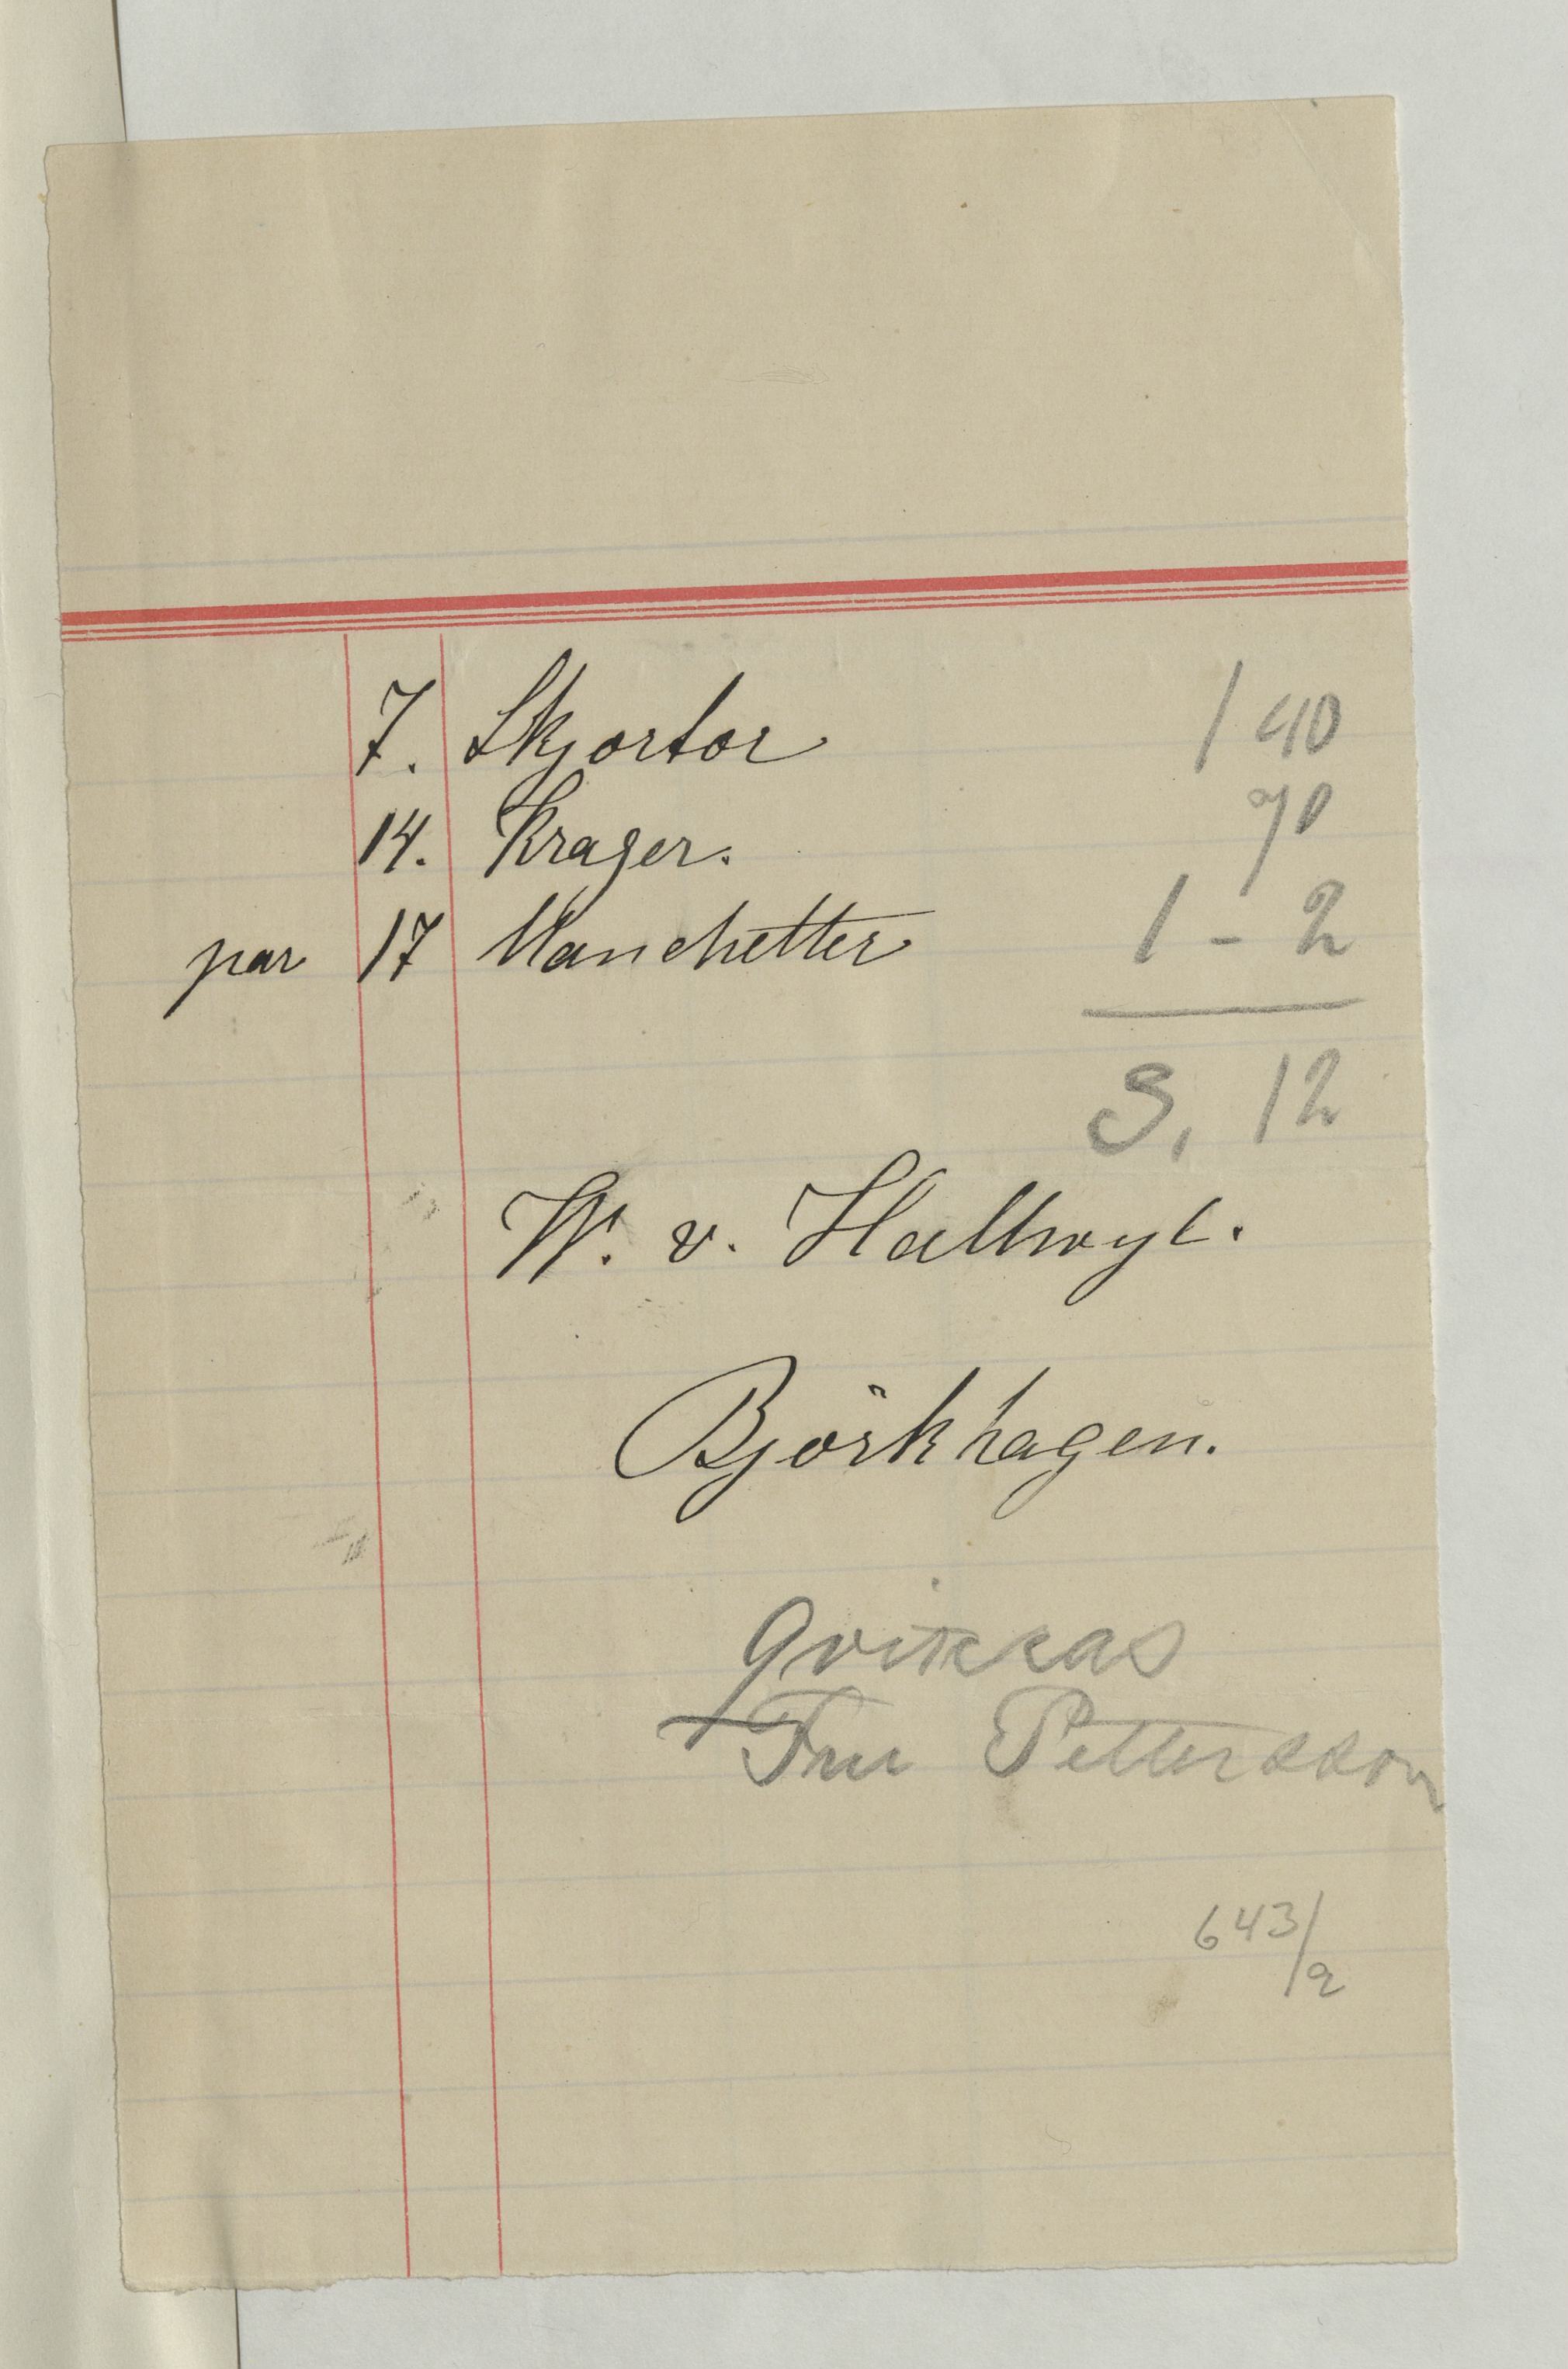 7. Skjortor 1 40
14. Krager. 70
par 17 Manchetter 1 - 2
3, 12
W. v. Hallwyl.
Björkhagen.
Qvitteras
Fru Pettersson
643/2